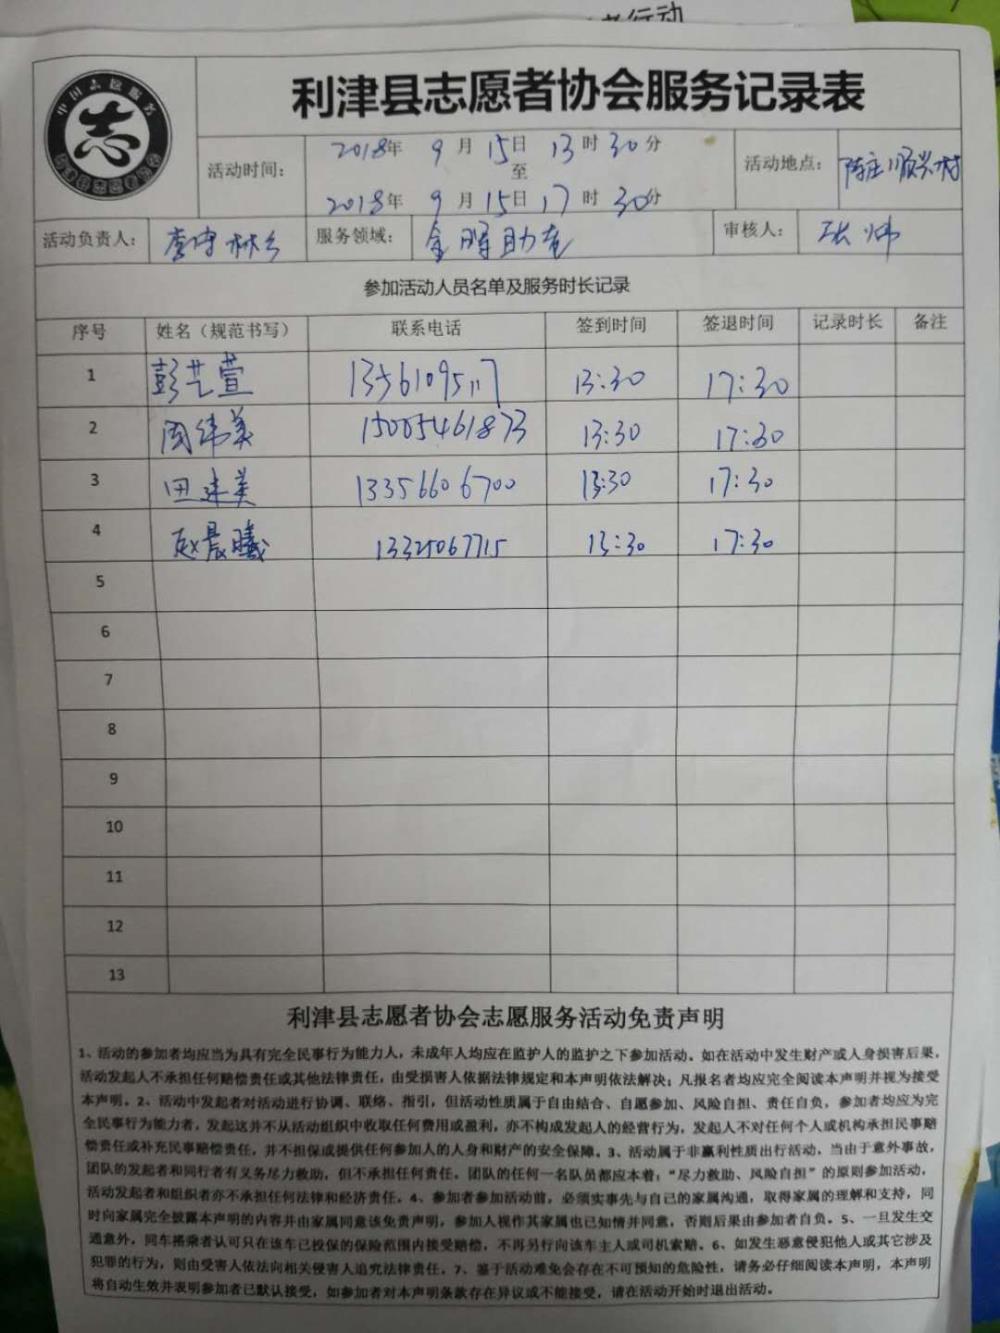 者行动
中国志愿服务
志
利津县志愿者协会服务记录表
活动时间： 2018年 9月15日 13时30分
至
2018年 9月15日17时30分
活动地点： 陈庄顺兴村
活动负责人：
服务领域： 金晖助老
审核人： 张炜
参加活动人员名单及服务时长记录
序号 姓名（规范书写） 联系电话 签到时间 签退时间 记录时长 备注
1 彭艺萱 13561095117 13:30 17:30
2 周纬美 15005461873 13:30 17:30
3 田建美 13356606700 13:30 17:30
4 赵晨曦 13325067715 13:30 17:30
5
6
7
8
9
10
11
12
13
利津县志愿者协会志愿服务活动免责声明
1、活动的参加者均应当为具有完全民事行为能力人，未成年人均应在监护人的监护之下参加活动。如在活动中发生财产或人身损害后果，
活动发起人不承担任何赔偿责任或其他法律责任，由受损害人依据法律规定和本声明依法解决；凡报名者均应完全阅读本声明并视为接受
本声明。2、活动中发起者对活动进行协调、联络、指引，但活动性质属于自由结合、自愿参加、风险自担、责任自负，参加者均应为完
全民事行为能力者，发起这并不从活动组织中收取任何费用或盈利，亦不构成发起人的经营行为，发起人不对任何个人或机构承担民事赔
偿责任或补充民事赔偿责任，并不担保或提供任何参加人的人身和财产的安全保障。3、活动属于非赢利性质出行活动，当由于意外事故，
团队的发起者和同行者有义务尽力救助，但不承担任何责任。团队的任何一名队员都应本着：“尽力救助、风险自担”的原则参加活动，
活动发起者和组织者亦不承担任何法律和经济责任。4、参加者参加活动前，必须实事先与自己的家属沟通，取得家属的理解和支持，同
时向家属完全披露本声明的内容并由家属同意该免责声明，参加人视作其家属也已知情并同意，否则后果由参加者自负。5、一旦发生交
通意外，同车搭乘者认可只在该车已投保的保险范围内接受赔偿，不再另行向该车主人或司机索赔。6、如发生恶意侵犯他人或其它涉及
犯罪的行为，则由受害人依法向相关侵害人追究法律责任。7、鉴于活动难免会存在不可预知的危险性，请务必仔细阅读本声明，本声明
将自动生效并表明参加者已默认接受，如参加者对本声明条款存在异议或不能接受，请在活动开始时退出活动。